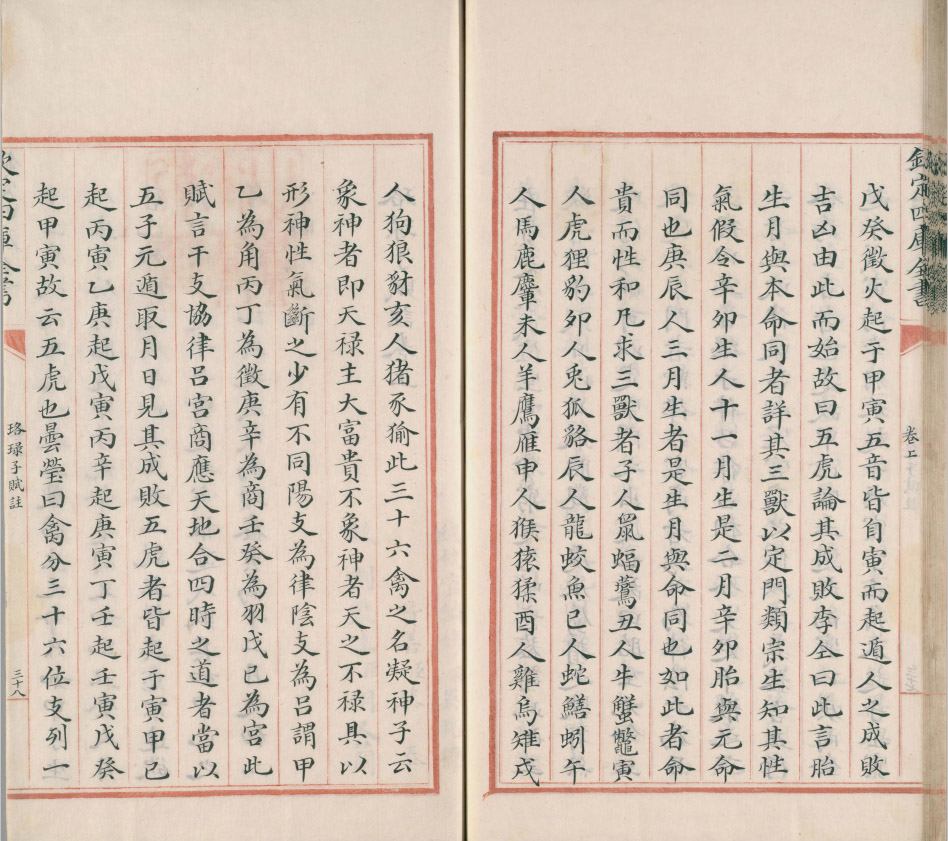 欽定四庫全書
卷上
戊癸徵火起于甲寅五音皆自寅而起遁人之成敗
吉凶由此而始故曰五虎論其成敗李仝曰此言胎
生月與本命同者詳其三獸以定門類宗生知其性
氣假令辛卯生人十一月生是二月辛卯胎與元命
同也庚辰人三月生者是生月與命同也如此者命
貴而性和凡求三獸者子人鼠蝠鷰丑人牛蟹鼈寅
人虎狸豹卯人兎狐貉辰人龍蛟魚巳人蛇鱔蚓午
人馬鹿麞未人羊鷹雁申人猴猿猱酉人雞烏雉戌
人狗狼豺亥人猪豕㺄此三十六禽之名凝神子云
象神者即天祿主大富貴不象神者天之不祿具以
形神性氣斷之少有不同陽支為律陰支為呂謂甲
乙為角丙丁為徵庚辛為商壬癸為羽戊已為宮此
賦言干支協律呂宮商應天地合四時之道者當以
五子元遁取月日見其成敗五虎者皆起于寅甲已
起丙寅乙庚起戊寅丙辛起庚寅丁壬起壬寅戊癸
起甲寅故云五虎也曇瑩曰禽分三十六位支列一
欽定四庫全書
珞琭子賦註
三十八